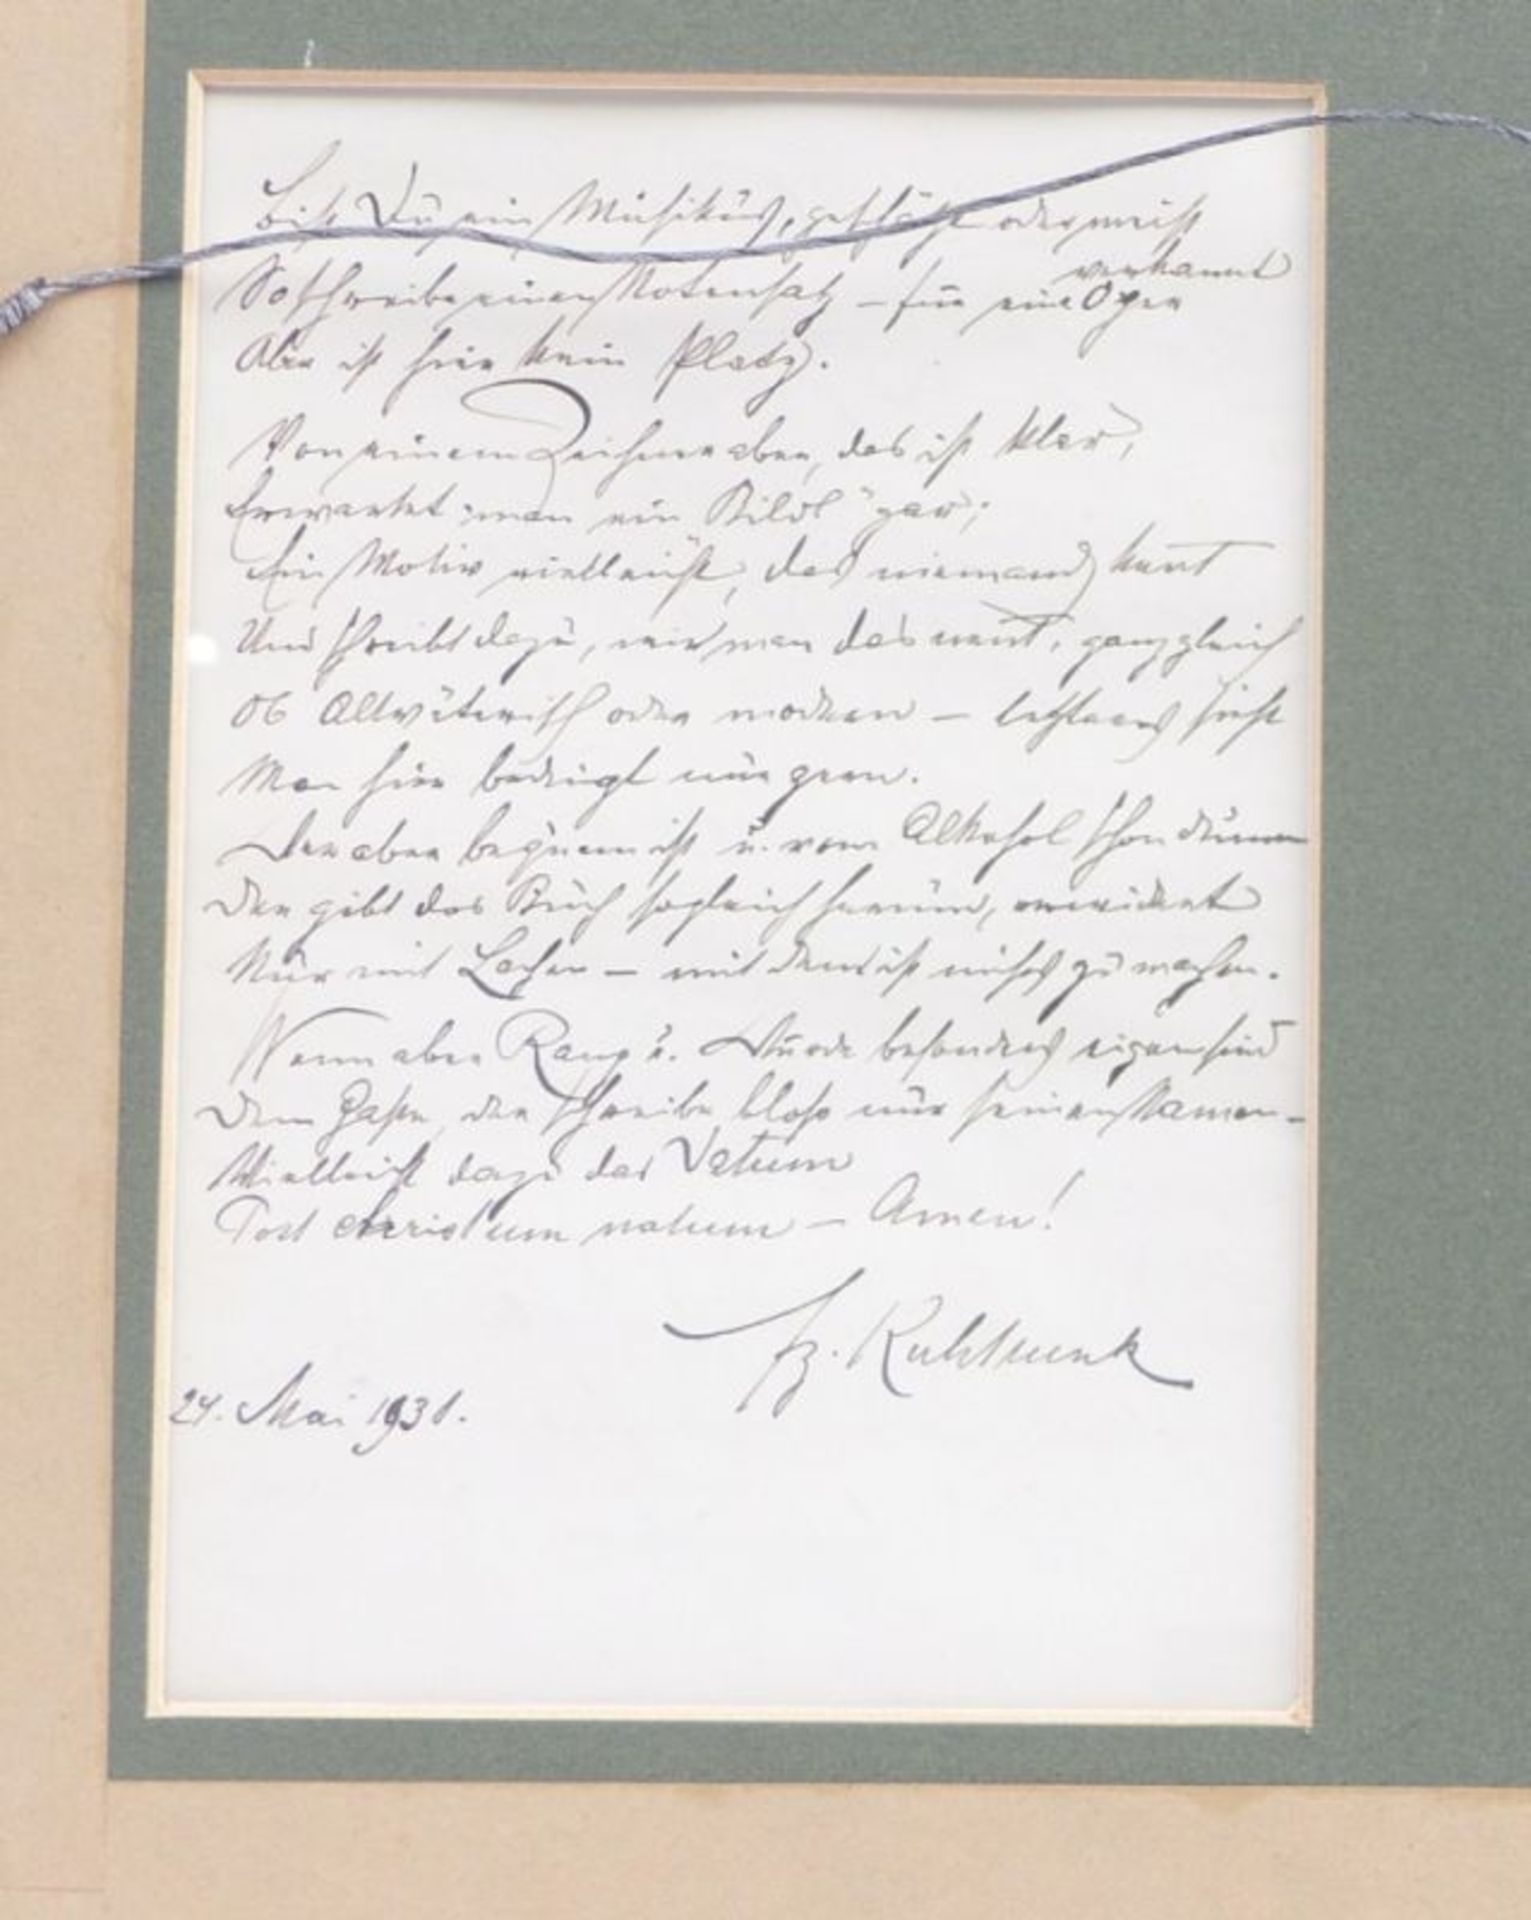 Bist Du ein Musikus, geschätzt oder meist
verkannt
So schreibe einen Notensatz – für eine Oper
Aber ist hier kein Platz.
Von einem Zeichner aber, das ist klar,
Erwartet man ein Bildl gar;
Ein Motiv vielleicht, das niemand kennt
Und schreibt dazu, wie man das nennt, ganz gleich
Ob Altväterisch oder modern – letzteres sieht
Man hier bedingt nur gern.
Der aber bequem ist u. vom Alkohol schon dumm
Der gibt das Buch sogleich herum,
Nur mit Lachen – mit dem ist nichts zu machen.
Wenn aber Rang u. Würde besonders eigen sind
Dem Gaste, der schreibe bloß nur seinen Namen –
Vielleicht dazu das Datum
Post christum natum – Amen!
fz. Kuhlbunk
24. Mai 1931.